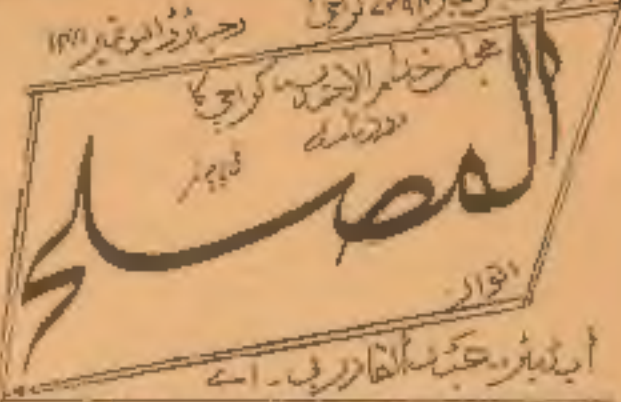 رجسٹرڈ ایل نمبر
کراچی
مجلس خدام الاحمدیہ کراچی کا
روزنامہ
المصلح
اتوار
ایڈیٹر۔ عبدالقادر بی۔ اے